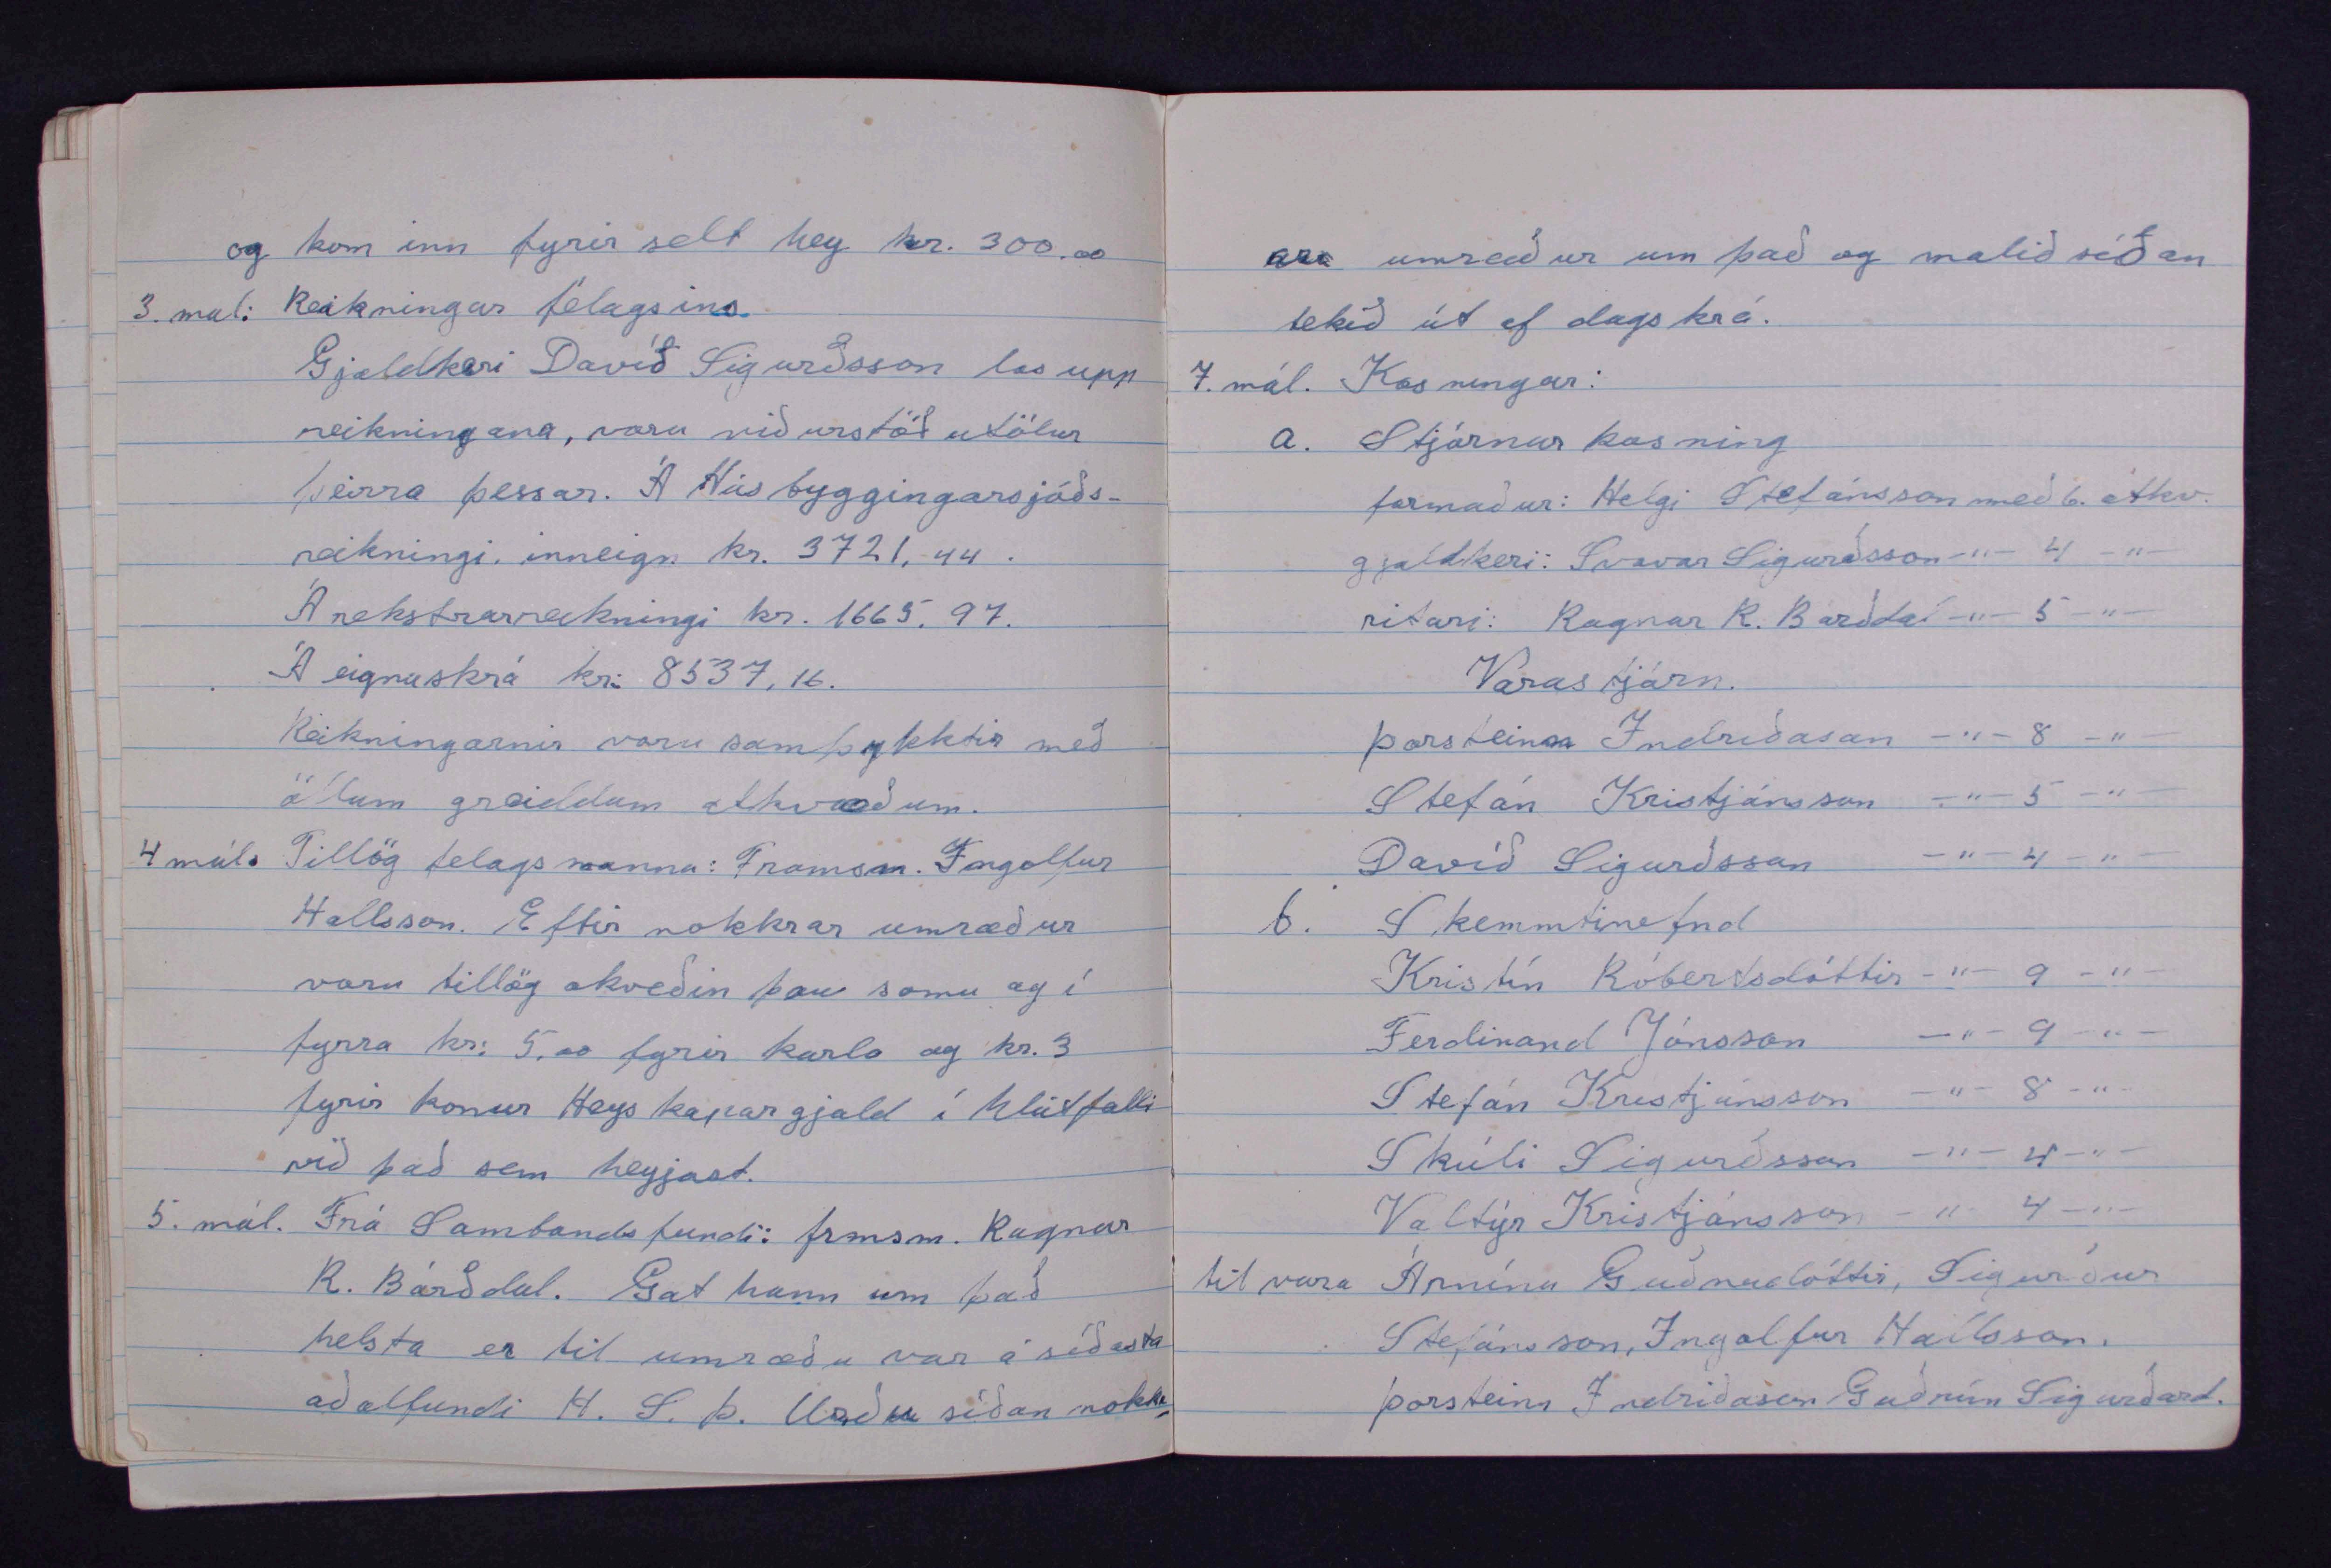 og kom inn fyrir selt hey kr. 300.00
3. mál: Reikningar félagsins
Gjaldkeri Davíð Sigurðsson las upp
reikningana, voru niðurstöðutölur
þeirra þessar. Á Húsbyggingarsjóðs-
reikningi. inneign kr. 3721,44.
Á rekstrarreikningi kr. 1665.97.
Á eignaskrá kr: 8537,16.
Reikningarnir voru samþykktir með
öllum greiddum atkvæðum.
4 mál. Tillög felagsmanna: Framsm. Ingolfur
Hallsson. Eftir nokkrar umræður
voru tillög akveðin þau somu og í
fyrra kr: 5.00 fyrir karla og kr. 3
fyrir konur Heyskapargjald í hlutfalli
við það sem heyjast.
5. mál. Frá Sambandsfundi: frmsm. Ragnar
R. Bárðdal. Gat hann um það
helsta er til umræðu var á síðasta
aðalfundi H. S. Þ. Urðu síðan nokkr-
ara umræður um það og malið síðan
tekið út af dagskrá.
7. mál. Kosningar:
a. Stjórnar kosning
formaður: Helgi Stefánsson með 6. atkv.
gjaldkeri: Svavar Sigurðsson -"- 4 -"-
ritari: Ragnar R. Barðdal -"- 5 -"-
Varastjórn.
Þorsteinn Indriðason -"- 8 -"-
Stefán Kristjánsson -"- 5 -"-
Davíð Sigurðsson -"- 4 -"-
b. Skemmtinefnd
Kristín Róbertsdóttir -"- 9 -"-
Ferdinand Jónsson -"- 9 -"-
Stefán Kristjánsson -"- 8 -"-
Skúli Sigurðsson -"- 4 -"-
Valtýr Kristjánsson -"- 4 -"-
til vara Árnína Guðnadóttir, Sigurður
Stefánsson, Ingolfur Hallsson.
Þorsteinn Indriðason Guðrún Sigurðard.